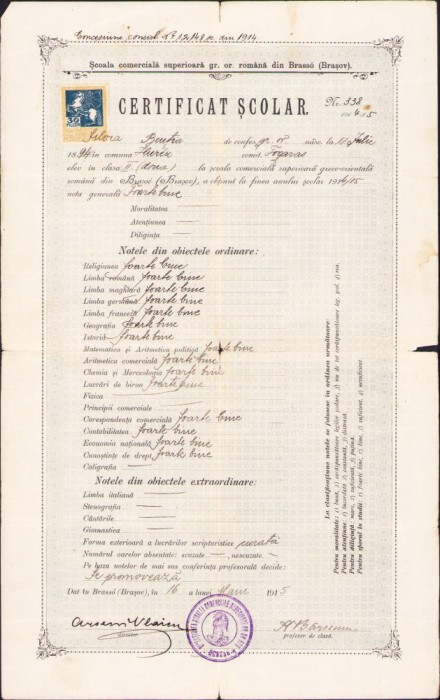 Concesiune consist. Nr. 12,148 sc. din 1914
Școala comercială superioară gr. or. română din Brassó (Brașov).
CERTIFICAT ȘCOLAR.
Nr. 338
1914/15
30
Butia de confes. gr. or. născ. la 12 Iulie
1894 in comuna comit. Fogaras
elev in clasa II (doua) la școala comercială superioară greco-orientală
română din Brassó (Brașov), a obținut la finea anului școlar 1914/15
nota generală foarte bine
Moralitatea
Atențiunea
Diligința
Notele din obiectele ordinare:
Religiunea foarte bine
Limba română foarte bine
Limba maghiară foarte bine
Limba germână foarte bine
Limba franceză foarte bine
Geografia foarte bine
Istoria foarte bine
Matematica și Aritmetica politică foarte bine
Aritmetica comercială foarte bine
Chemia și Merceologia foarte bine
Lucrări de birou foarte bine
Fizica
Principii comerciale
Corespondența comercială foarte bine
Contabilitatea foarte bine
Economia națională foarte bine
Cunoștințe de drept foarte bine
Caligrafia
Notele din obiectele extraordinare:
Limba italiană
Stenografia
Cântările
Gimnastica
Forma exterioară a lucrărilor scripturistice curată
Numărul oarelor absentate: scuzate —, nescuzate —
Pe baza notelor de mai sus conferința profesorală decide:
Se promovează
Dat în Brassó (Brașov), în 16 a lunei Maiu 1915
Arseni Vlaicu
director
profesor de clasă.
La clasificațiune notele se folosesc în ordinea următoare:
Pentru moralitate:
Pentru atențiune:
Pentru diligință:
Pentru sporul în studii: